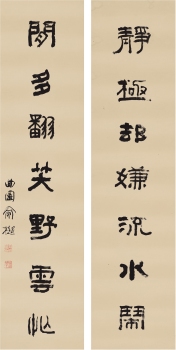 靜極却嫌流水鬧
閒多翻笑野雲忙
曲園俞樾